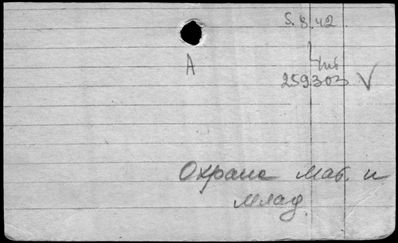 5.8.42
A
Инв
259303 V
Охране мат. и
млад.